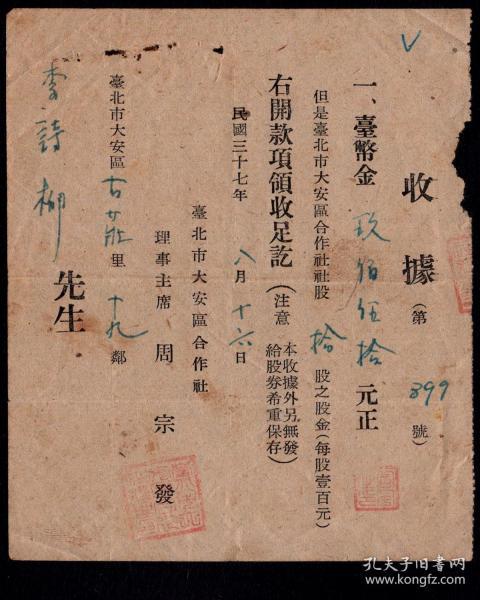 收據(第899號)
一、臺幣金玖佰伍拾元正
但是臺北市大安區合作社社股拾股之股金(每股壹百元)
右開款項領收足訖(注意 本收據外另無發
給股劵希重保存)
民國三十七年八月十六日
臺北市大安區合作社
理事主席 周宗發
臺北市大安區古莊里十九鄰
李詩柳先生
孔夫子旧书网
www.kongfz.com